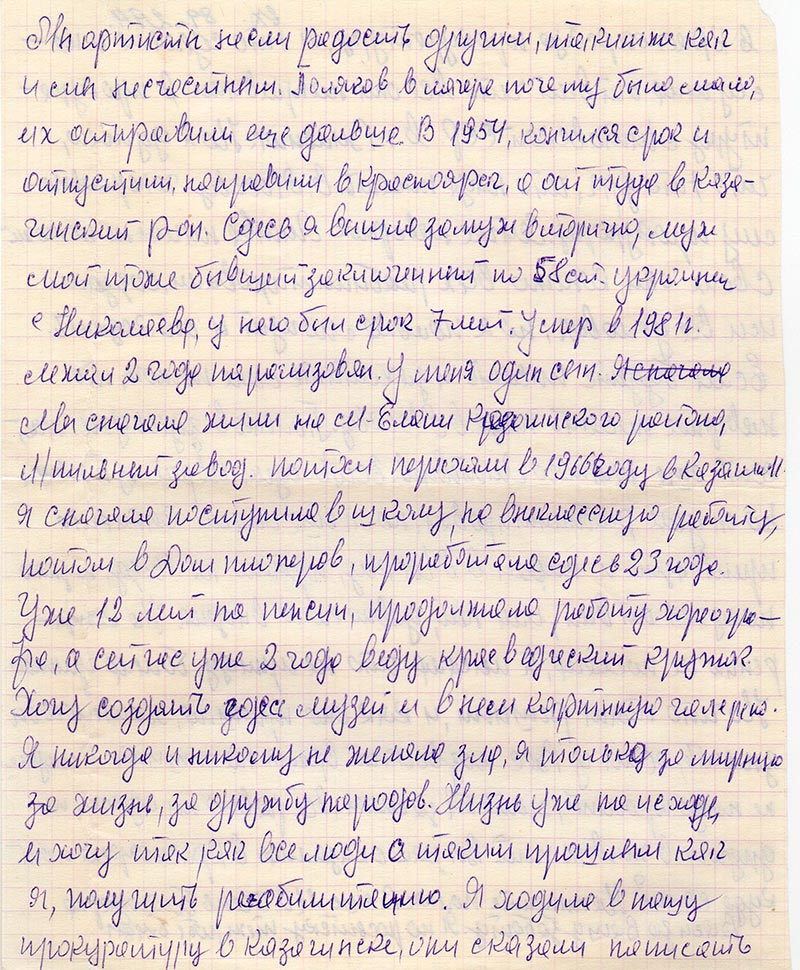 Мы артисты несли радость другим, таким же как
и мы несчастным. Поляков в лагере почему было мало,
их отправили еще дальше. В 1954, кончился срок и
отпустили, направили в Красноярск, а от туда в Каза-
чинский р-он. Сдесь я вышла замуж вторично, муж
мой тоже бывший заключенный по 58 ст. украинец
с Николаева, у него был срок 7 лет. Умер в 1981 г.
лежал 2 года парализован. У меня один сын. Я сначала
Мы сначала жили на М-Елани Казачинского района,
Шпильный завод. потом переехали в 1966 году в Казачинск
я сначала поступила в школу, на внеклассную работу,
потом в Дом пионеров, проработала сдесь 23 года.
Уже 12 лет на пенсии, продолжала работу хореогра-
фа, а сейчас уже 2 года веду краеведческий кружок.
Хочу создать сдесь музей и в нем картинную галерею.
Я никогда и никому не желала зла, я только за мирную
за жизнь, за дружбу народов. Жизнь уже на исходе,
и хочу так как все люди с таким прошлым как
я, получить реабилитацию. Я ходила в нашу
прокуратуру в Казачинске, они сказали написать